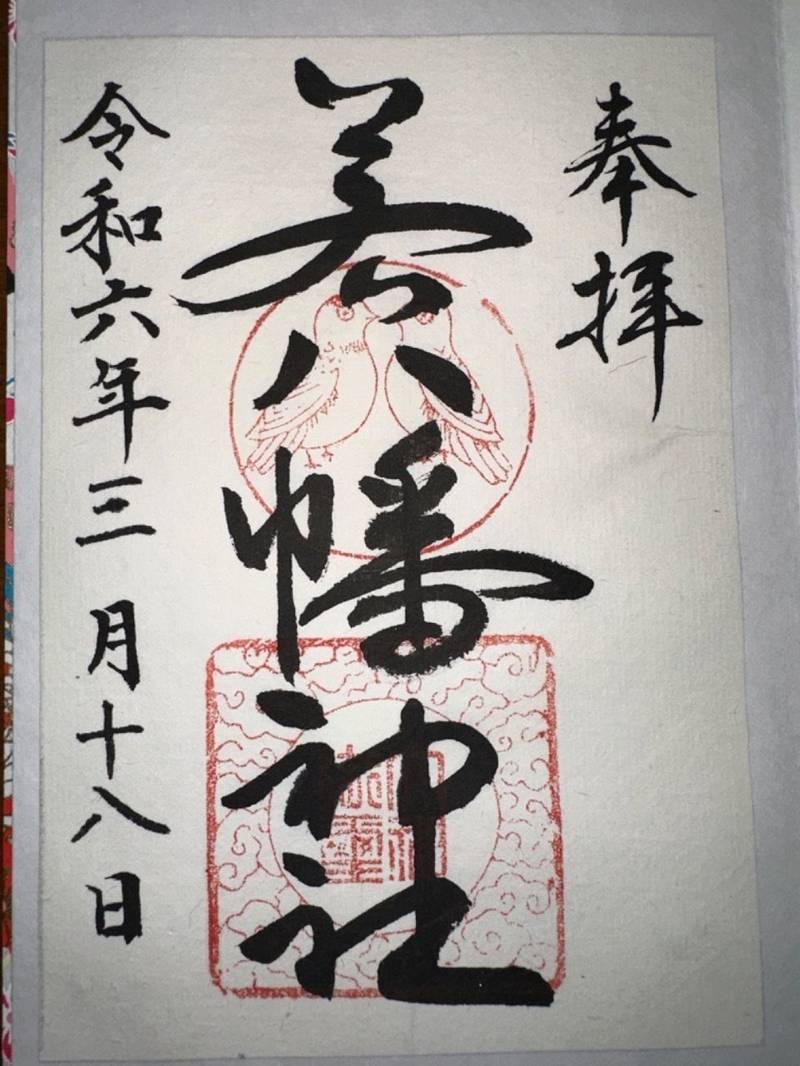 奉拝
若八幡神社
令和六年三月十八日